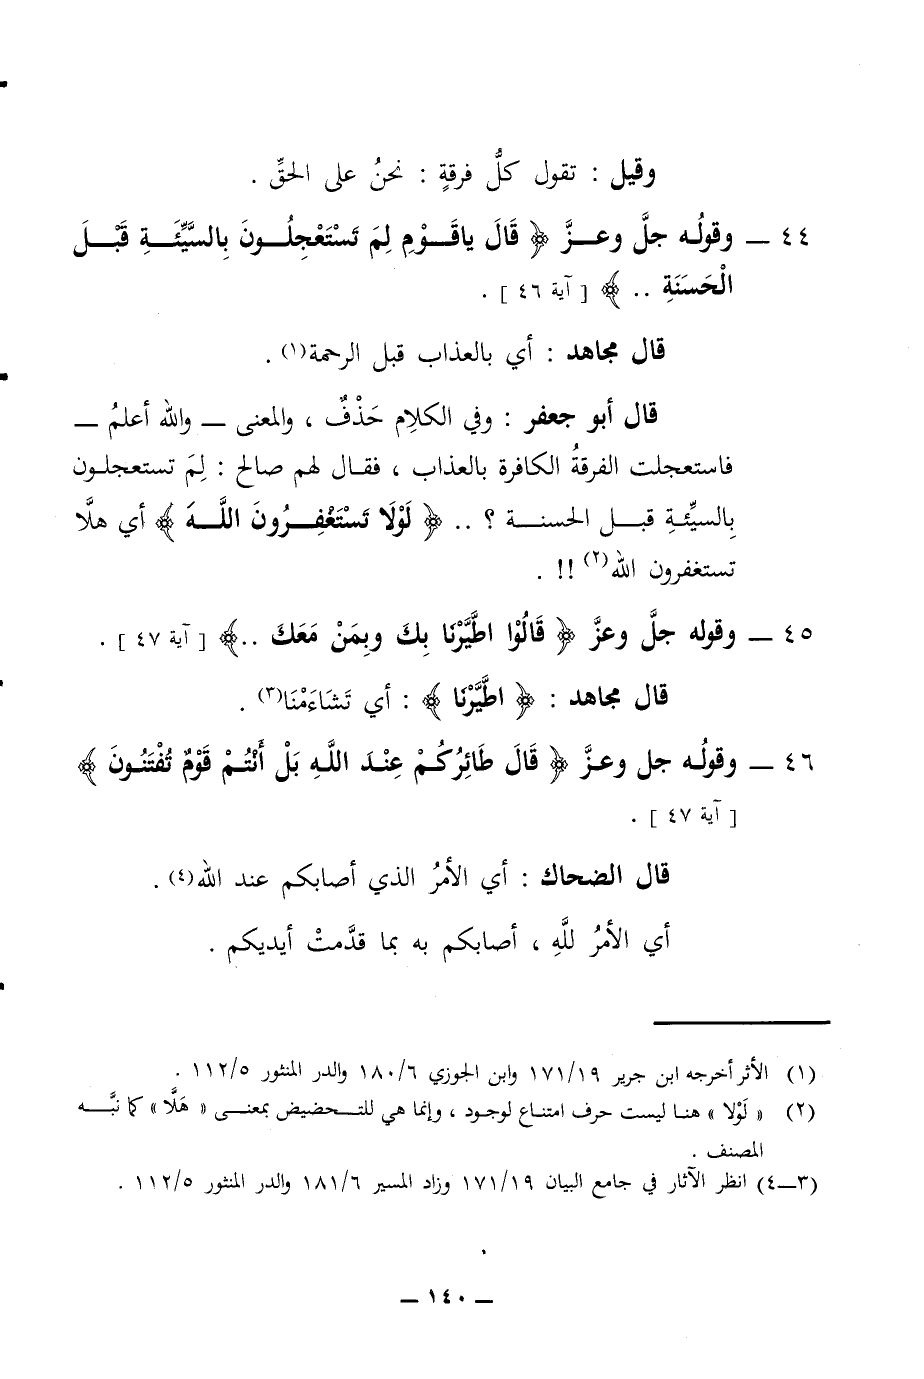 وقيل : تقول كلُّ فرقةٍ : نحنُ على الحقِّ .
٤٤ ـ وقولُه جلَّ وعزَّ ﴿ قَالَ ياقَوْمِ لِمَ تَسْتَعْجِلُونَ بِالسَّيِّئَةِ قَبْلَ
الْحَسَنَةِ .. ﴾ [ آية ٤٦ ] .
قال مجاهد : أي بالعذاب قبل الرحمة(١) .
قال أبو جعفر : وفي الكلامِ حَذْفٌ ، والمعنى ـ والله أعلمُ ـ
فاستعجلت الفرقةُ الكافرة بالعذاب ، فقال لهم صالح : لِمَ تستعجلون
بِالسيِّئةِ قبل الحسنة ؟ .. ﴿ لَوْلَا تَسْتَغْفِرُونَ اللَّهَ ﴾ أي هلَّا
تستغفرون الله(٢) !! .
٤٥ ـ وقوله جلَّ وعزَّ ﴿ قَالُوْا اطَّيَّرْنَا بِكَ وبِمَنْ مَعَكَ ..﴾ [ آية ٤٧ ] .
قال مجاهد : ﴿ اطَّيَّرْنَا ﴾ : أي تَشَاءَمْنَا(٣) .
٤٦ ـ وقولُه جل وعزَّ ﴿ قَالَ طَائِرُكُمْ عِنْدَ اللَّهِ بَلْ أَنْتُمْ قَوْمٌ تُفْتَنُونَ ﴾
[ آية ٤٧ ] .
قال الضحاك : أي الأمرُ الذي أصابكم عند الله(٤) .
أي الأمرُ للَّهِ ، أصابكم به بما قدَّمتْ أيديكم .
(١) الأثر أخرجه ابن جرير ١٧١/١٩ وابن الجوزي ١٨٠/٦ والدر المنثور ١١٢/٥ .
(٢) « لَوْلا » هنا ليست حرف امتناع لوجود ، وإنما هي للتحضيض بمعنى « هَلَّا » كما نبَّه
المصنف .
(٣ـ٤) انظر الآثار في جامع البيان ١٧١/١٩ وزاد المسير ١٨١/٦ والدر المنثور ١١٢/٥ .
ـ ١٤٠ ـ